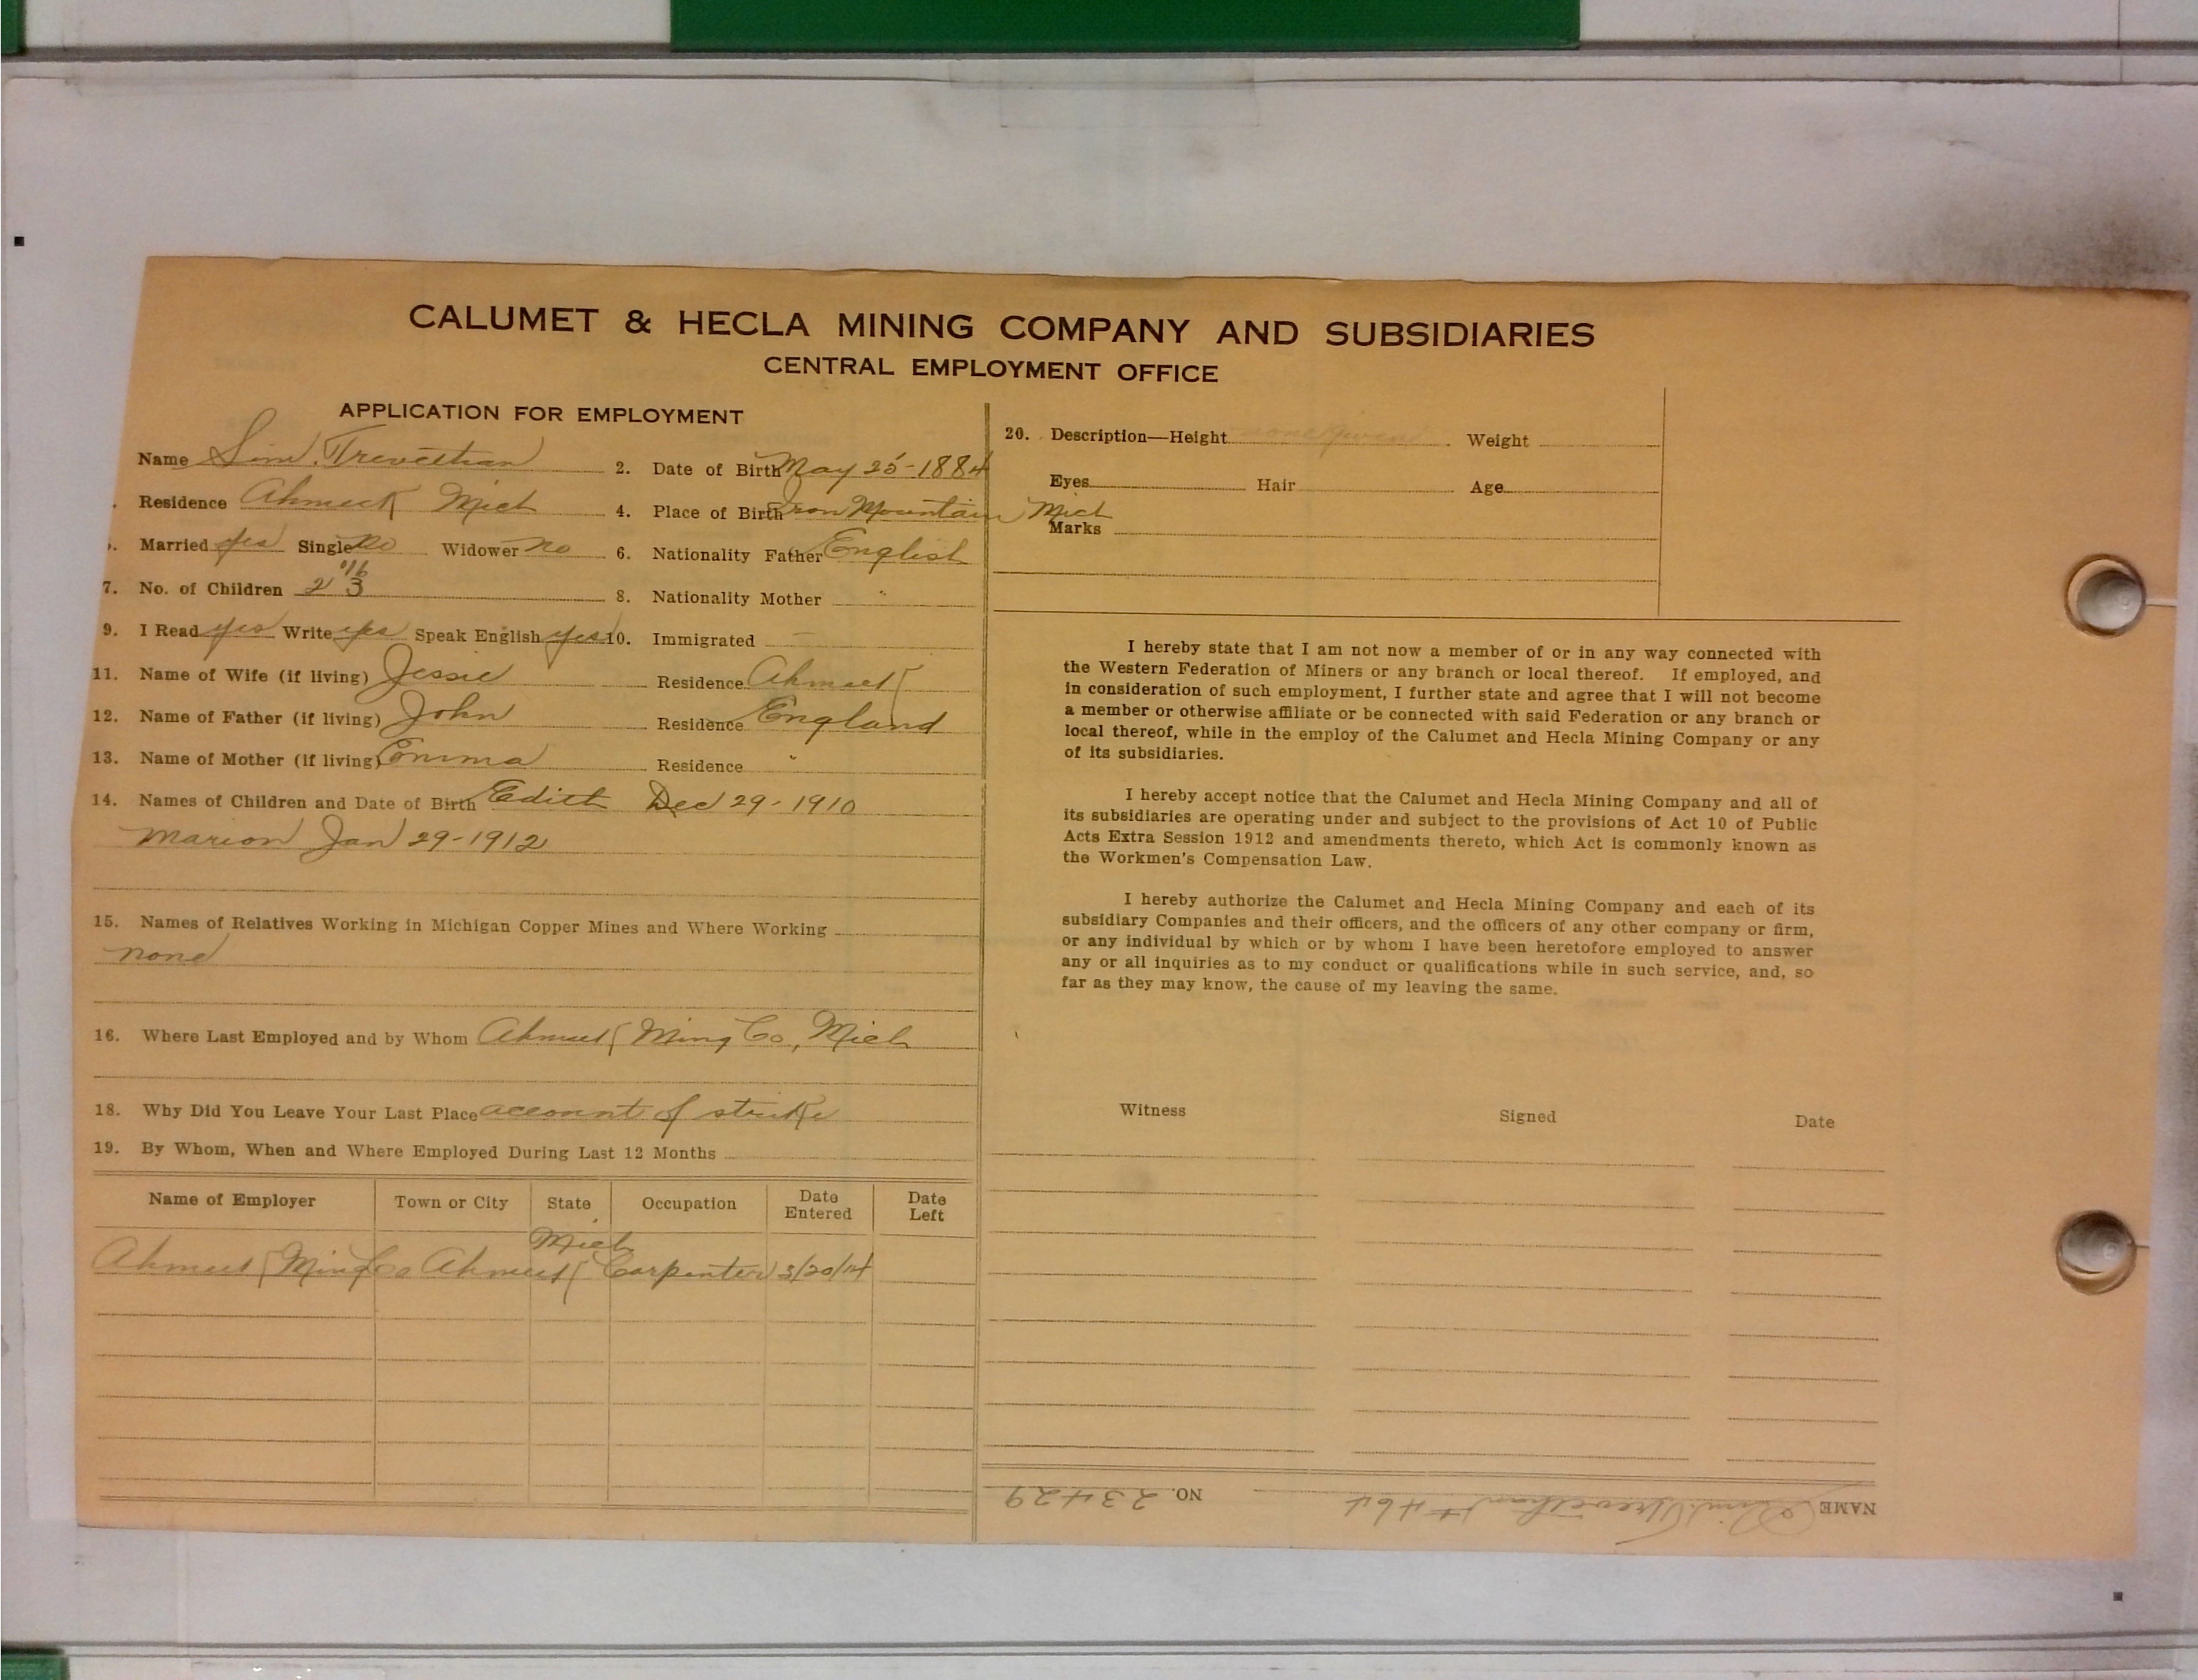 CALUMET & HECLA MINING COMPANY AND SUBSIDIARIES
CENTRAL EMPLOYMENT OFFICE
APPLICATION FOR EMPLOYMENT
Name Sim. Trevethan 2. Date of Birth May 25-1884
Residence Ahmeek Mich 4. Place of Birth Iron Mountain Mich
Married yes Single no Widower no 6. Nationality Father English
7. No. of Children 2 3 '16 8. Nationality Mother "
9. I Read yes Write yes Speak English yes 10. Immigrated —
11. Name of Wife (if living) Jessie Residence Ahmeek
12. Name of Father (if living) John Residence England
13. Name of Mother (if living) Emma Residence "
14. Names of Children and Date of Birth Edith Dec 29-1910
Marion Jan 29-1912
15. Names of Relatives Working in Michigan Copper Mines and Where Working
none
16. Where Last Employed and by Whom Ahmeek Ming Co, Mich
18. Why Did You Leave Your Last Place account of strike
19. By Whom, When and Where Employed During Last 12 Months
Name of Employer Town or City State Occupation Date Entered Date Left
Ahmeek Ming Co Ahmeek Mich Carpenter 3/20/14
20. Description—Height Weight
Eyes Hair Age
Marks
I hereby state that I am not now a member of or in any way connected with
the Western Federation of Miners or any branch or local thereof. If employed, and
in consideration of such employment, I further state and agree that I will not become
a member or otherwise affiliate or be connected with said Federation or any branch or
local thereof, while in the employ of the Calumet and Hecla Mining Company or any
of its subsidiaries.
I hereby accept notice that the Calumet and Hecla Mining Company and all of
its subsidiaries are operating under and subject to the provisions of Act 10 of Public
Acts Extra Session 1912 and amendments thereto, which Act is commonly known as
the Workmen's Compensation Law.
I hereby authorize the Calumet and Hecla Mining Company and each of its
subsidiary Companies and their officers, and the officers of any other company or firm,
or any individual by which or by whom I have been heretofore employed to answer
any or all inquiries as to my conduct or qualifications while in such service, and, so
far as they may know, the cause of my leaving the same.
Witness Signed Date
NAME Sim. Trevethan #464 NO. 23429